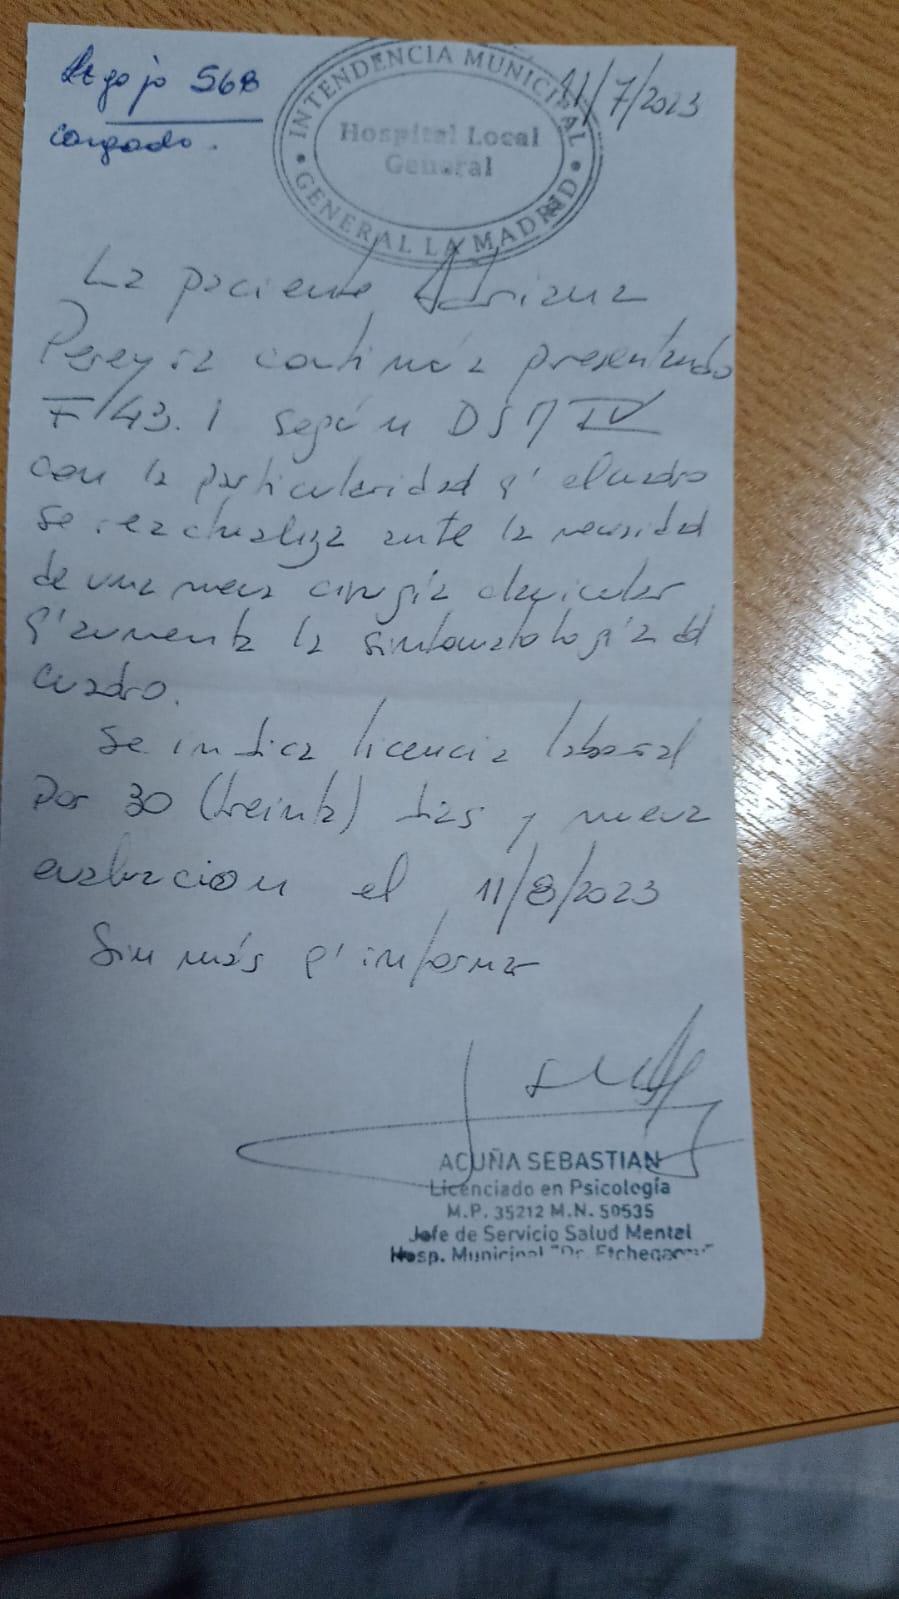 Legajo 568
cargado.
11/7/2023
INTENDENCIA MUNICIPAL
Hospital Local
General
GENERAL LA MADRID
La paciente Adriana
Pereyra continúa presentando
F/43.1 según DSM IV
con la particularidad q' el cuadro
se reactualiza ante la necesidad
de una nueva cirugía clavicular
q' aumenta la sintomatología del
cuadro.
Se indica licencia laboral
por 30 (treinta) días y nueva
evaluacion el 11/8/2023
Sin más q' informar
ACUÑA SEBASTIAN
Licenciado en Psicología
M.P. 35212 M.N. 50535
Jefe de Servicio Salud Mental
Hosp. Municipal "Dr.